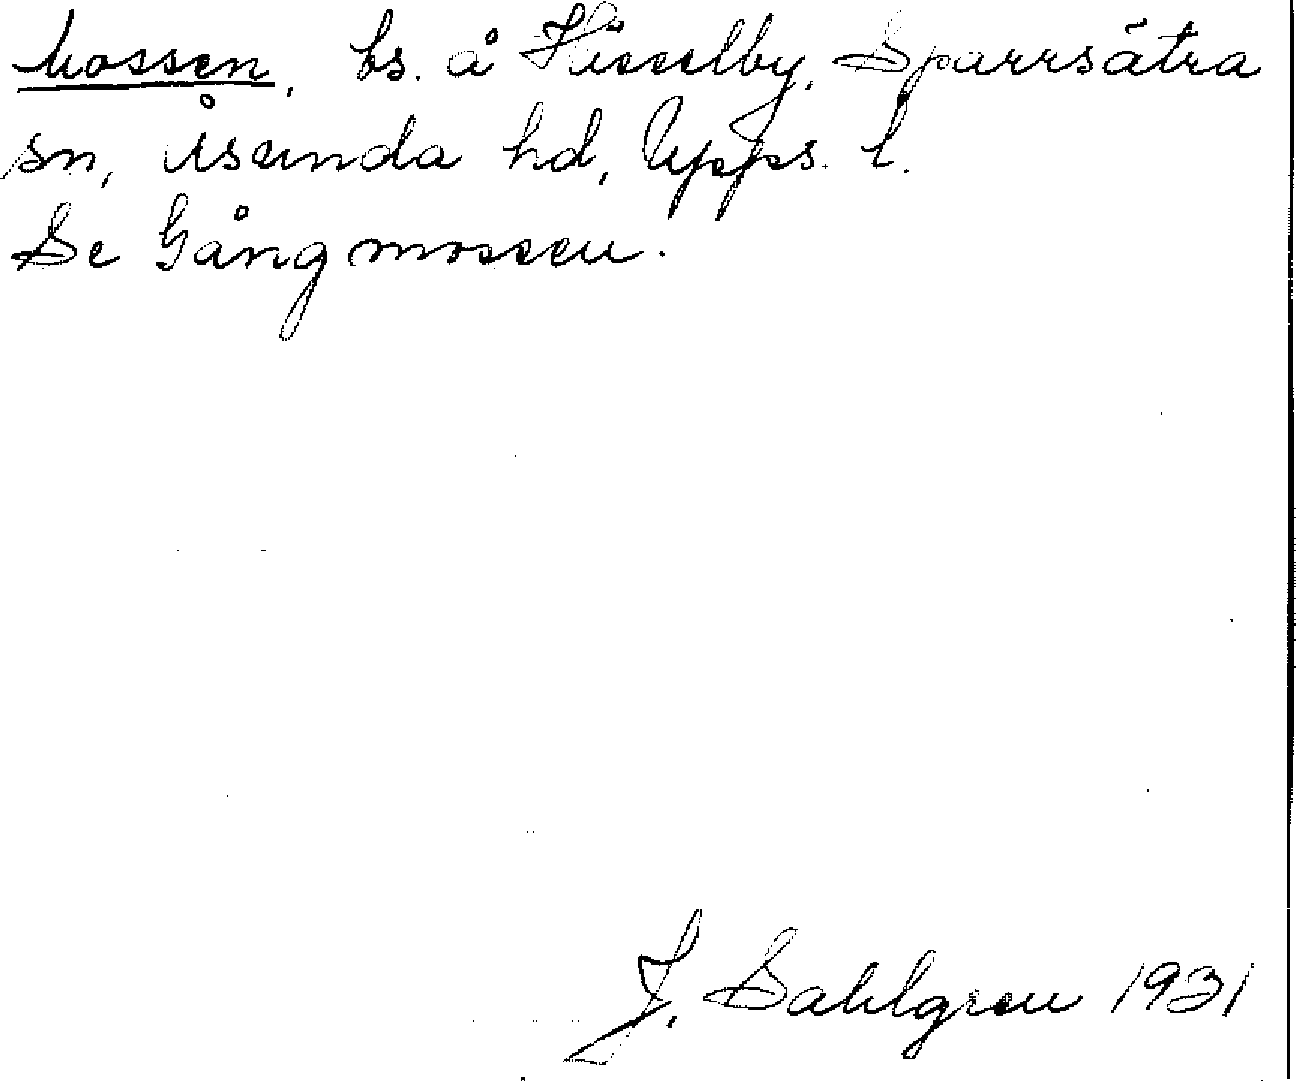 Mossen, bs. å Hässelby, Sparrsätra
sn, Åsunda hd, Upps. l.
Se Gångmossen.
J. Sahlgren 1931